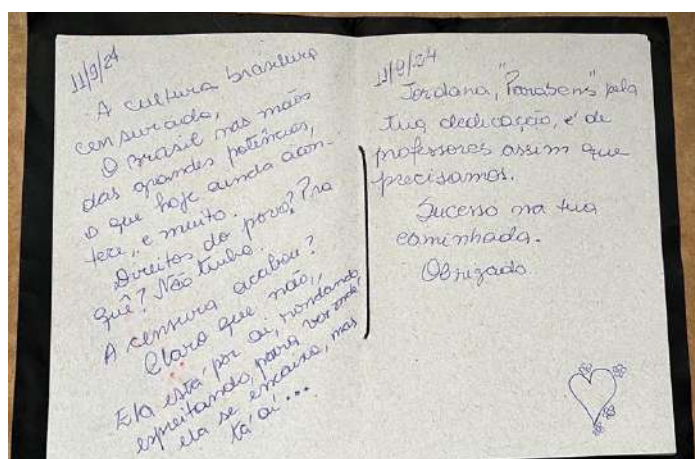 11/9/24
A cultura brasileira
censurada,
O Brasil nas mãos
das grandes potências,
o que hoje ainda acon-
tece, e muito.
Direitos do povo? Pra
quê? Não tinha.
A censura acabou?
Claro que não,
Ela está por aí, rondando,
espreitando, para ver onde
ela se encaixa, mas
tá aí...
11/9/24
Jordana, "Parabéns" pela
tua dedicação, é de
professores assim que
precisamos.
Sucesso na tua
caminhada.
Obrigado